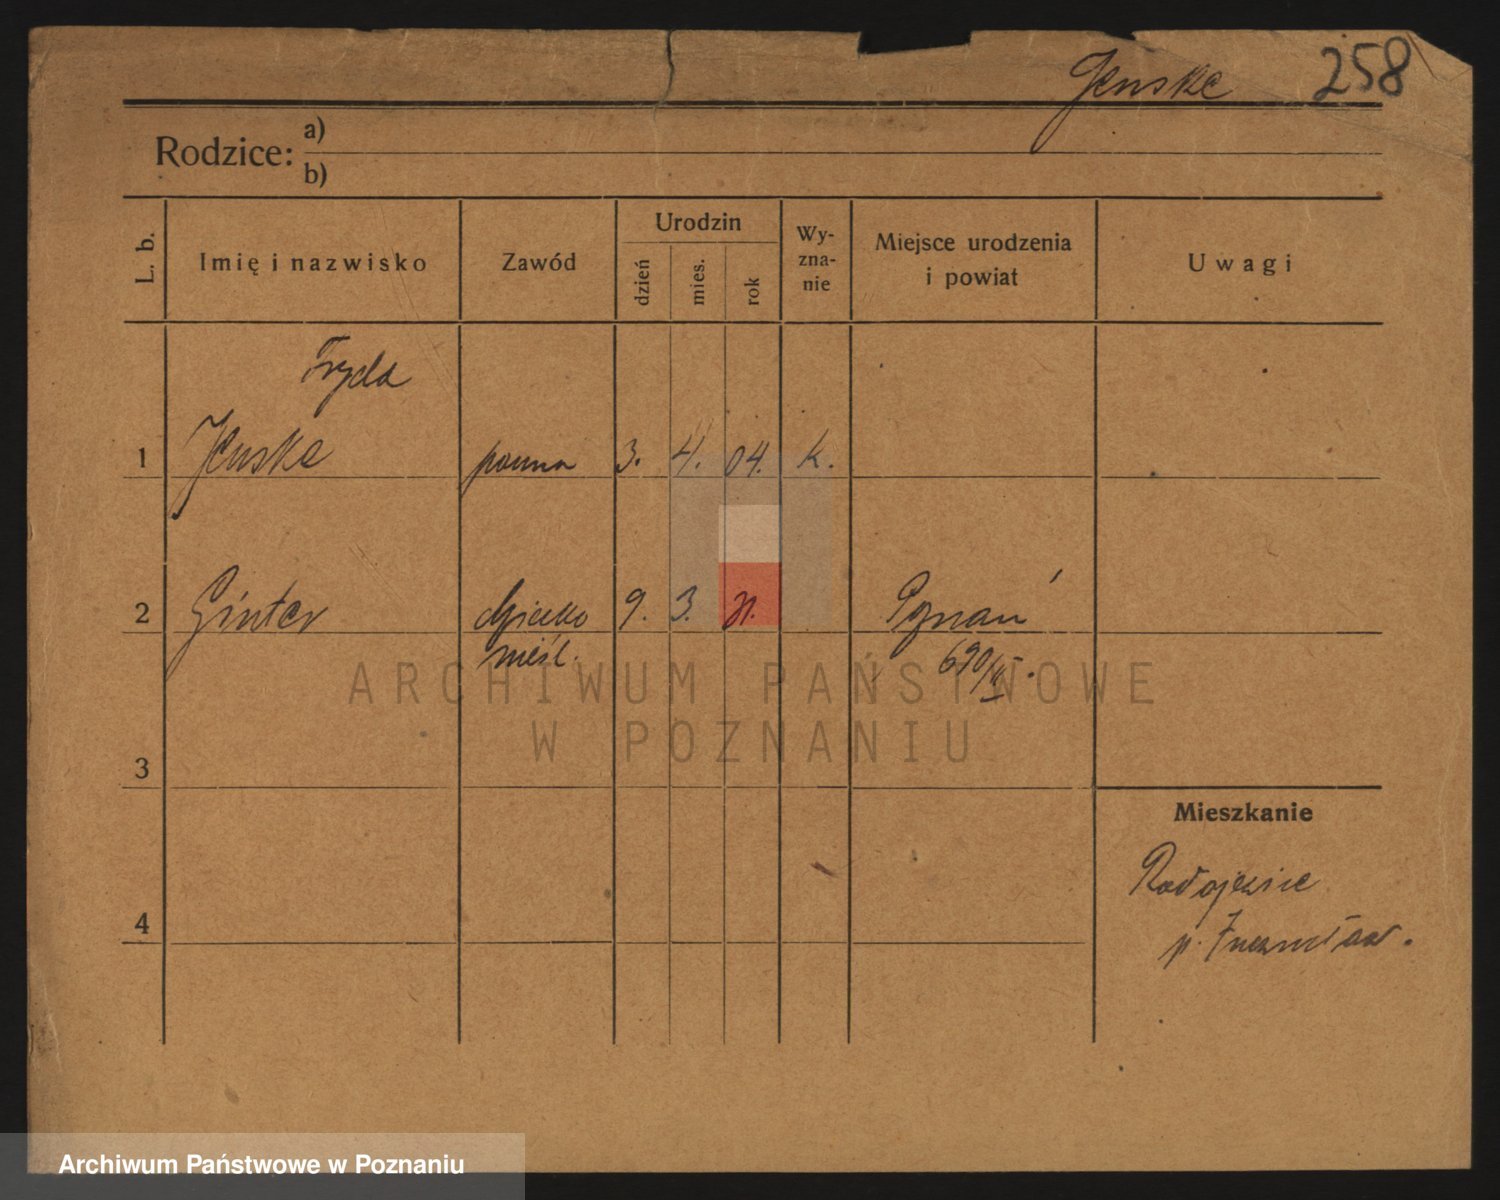 Jenske 258
Rodzice: a)
b)
L. b. Imię i nazwisko Zawód Urodzin dzień mies. rok Wy-zna-nie Miejsce urodzenia i powiat Uwagi
Fryda
1 Jenske panna 3. 4. 04. k.
2 Ginter dziecko 9. 3. 31. Poznań
nieśl. 690/II.
ARCHIWUM PAŃSTWOWE
W POZNANIU
3
Mieszkanie
Radojewice
4
p. Inowrocław.
Archiwum Państwowe w Poznaniu